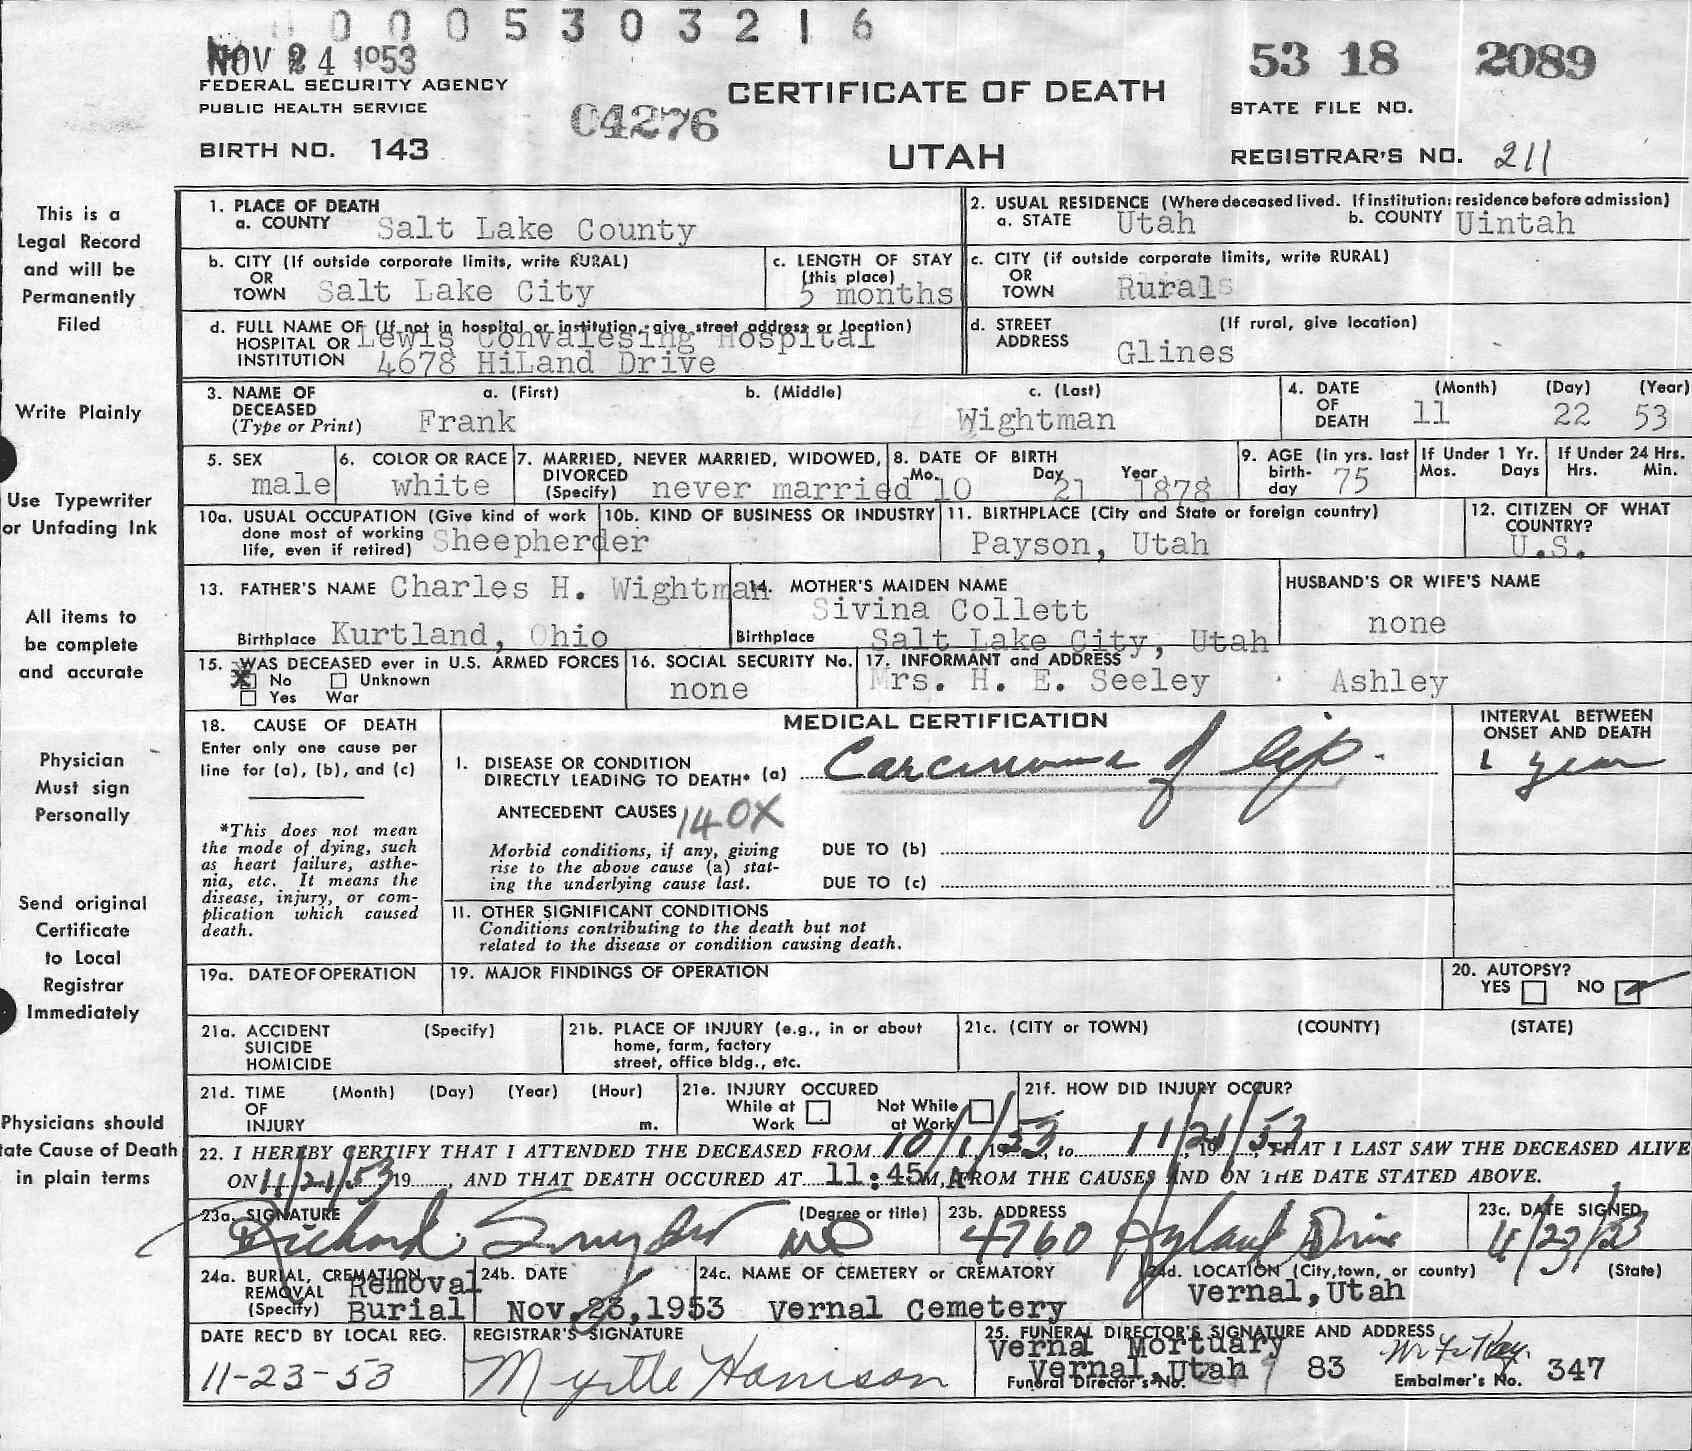 0 0 0 5 3 0 3 2 1 6
NOV 24 1953
53 18 2089
FEDERAL SECURITY AGENCY
PUBLIC HEALTH SERVICE
04276
CERTIFICATE OF DEATH
STATE FILE NO.
BIRTH NO. 143
UTAH
REGISTRAR'S NO. 211
This is a
Legal Record
and will be
Permanently
Filed
Write Plainly
Use Typewriter
or Unfading Ink
All items to
be complete
and accurate
Physician
Must sign
Personally
Send original
Certificate
to Local
Registrar
Immediately
Physicians should
tate Cause of Death
in plain terms
1. PLACE OF DEATH
a. COUNTY Salt Lake County
2. USUAL RESIDENCE (Where deceased lived. If institution: residence before admission)
a. STATE Utah b. COUNTY Uintah
b. CITY (If outside corporate limits, write RURAL)
OR
TOWN Salt Lake City
c. LENGTH OF STAY
(this place)
5 months
c. CITY (if outside corporate limits, write RURAL)
OR
TOWN Rurals
d. FULL NAME OF (If not in hospital or institution, give street address or location)
HOSPITAL OR Lewis Convalesing Hospital
INSTITUTION 4678 HiLand Drive
d. STREET (If rural, give location)
ADDRESS
Glines
3. NAME OF a. (First) b. (Middle) c. (Last)
DECEASED
(Type or Print) Frank Wightman
4. DATE (Month) (Day) (Year)
OF
DEATH 11 22 53
5. SEX
male
6. COLOR OR RACE
white
7. MARRIED, NEVER MARRIED, WIDOWED,
DIVORCED
(Specify) never married
8. DATE OF BIRTH
Mo. Day Year
10 21 1878
9. AGE (in yrs. last
birth-
day 75
If Under 1 Yr.
Mos. Days
If Under 24 Hrs.
Hrs. Min.
10a. USUAL OCCUPATION (Give kind of work
done most of working
life, even if retired) Sheepherder
10b. KIND OF BUSINESS OR INDUSTRY
11. BIRTHPLACE (City and State or foreign country)
Payson, Utah
12. CITIZEN OF WHAT
COUNTRY?
U.S.
13. FATHER'S NAME Charles H. Wightman
Birthplace Kurtland, Ohio
14. MOTHER'S MAIDEN NAME
Sivina Collett
Birthplace Salt Lake City, Utah
HUSBAND'S OR WIFE'S NAME
none
15. WAS DECEASED ever in U.S. ARMED FORCES
X No Unknown
Yes War
16. SOCIAL SECURITY No.
none
17. INFORMANT and ADDRESS
Mrs. H. E. Seeley Ashley
18. CAUSE OF DEATH
Enter only one cause per
line for (a), (b), and (c)
*This does not mean
the mode of dying, such
as heart failure, asthe-
nia, etc. It means the
disease, injury, or com-
plication which caused
death.
MEDICAL CERTIFICATION
1. DISEASE OR CONDITION
DIRECTLY LEADING TO DEATH* (a) Carcinoma of lip.
ANTECEDENT CAUSES 140X
Morbid conditions, if any, giving
rise to the above cause (a) stat-
ing the underlying cause last.
DUE TO (b)
DUE TO (c)
11. OTHER SIGNIFICANT CONDITIONS
Conditions contributing to the death but not
related to the disease or condition causing death.
INTERVAL BETWEEN
ONSET AND DEATH
1 year
19a. DATE OF OPERATION
19. MAJOR FINDINGS OF OPERATION
20. AUTOPSY?
YES NO
21a. ACCIDENT (Specify)
SUICIDE
HOMICIDE
21b. PLACE OF INJURY (e.g., in or about
home, farm, factory
street, office bldg., etc.
21c. (CITY or TOWN) (COUNTY) (STATE)
21d. TIME (Month) (Day) (Year) (Hour)
OF
INJURY m.
21e. INJURY OCCURED
While at Work
Not While at Work
21f. HOW DID INJURY OCCUR?
22. I HEREBY CERTIFY THAT I ATTENDED THE DECEASED FROM 10/1/53, 19 to 11/21/53, 19, THAT I LAST SAW THE DECEASED ALIVE
ON 11/21/53 19, AND THAT DEATH OCCURED AT 11:45 M, A FROM THE CAUSES AND ON THE DATE STATED ABOVE.
23a. SIGNATURE (Degree or title)
Richard Snyder MD
23b. ADDRESS
4760 Hyland Drive
23c. DATE SIGNED
11/23/53
24a. BURIAL, CREMATION,
REMOVAL Removal
(Specify) Burial
24b. DATE
Nov. 23, 1953
24c. NAME OF CEMETERY or CREMATORY
Vernal Cemetery
24d. LOCATION (City, town, or county) (State)
Vernal, Utah
DATE REC'D BY LOCAL REG.
11-23-53
REGISTRAR'S SIGNATURE
Myrtle Harrison
25. FUNERAL DIRECTOR'S SIGNATURE AND ADDRESS
Vernal Mortuary
Vernal, Utah
Funeral Director's No. 83
Embalmer's No. 347